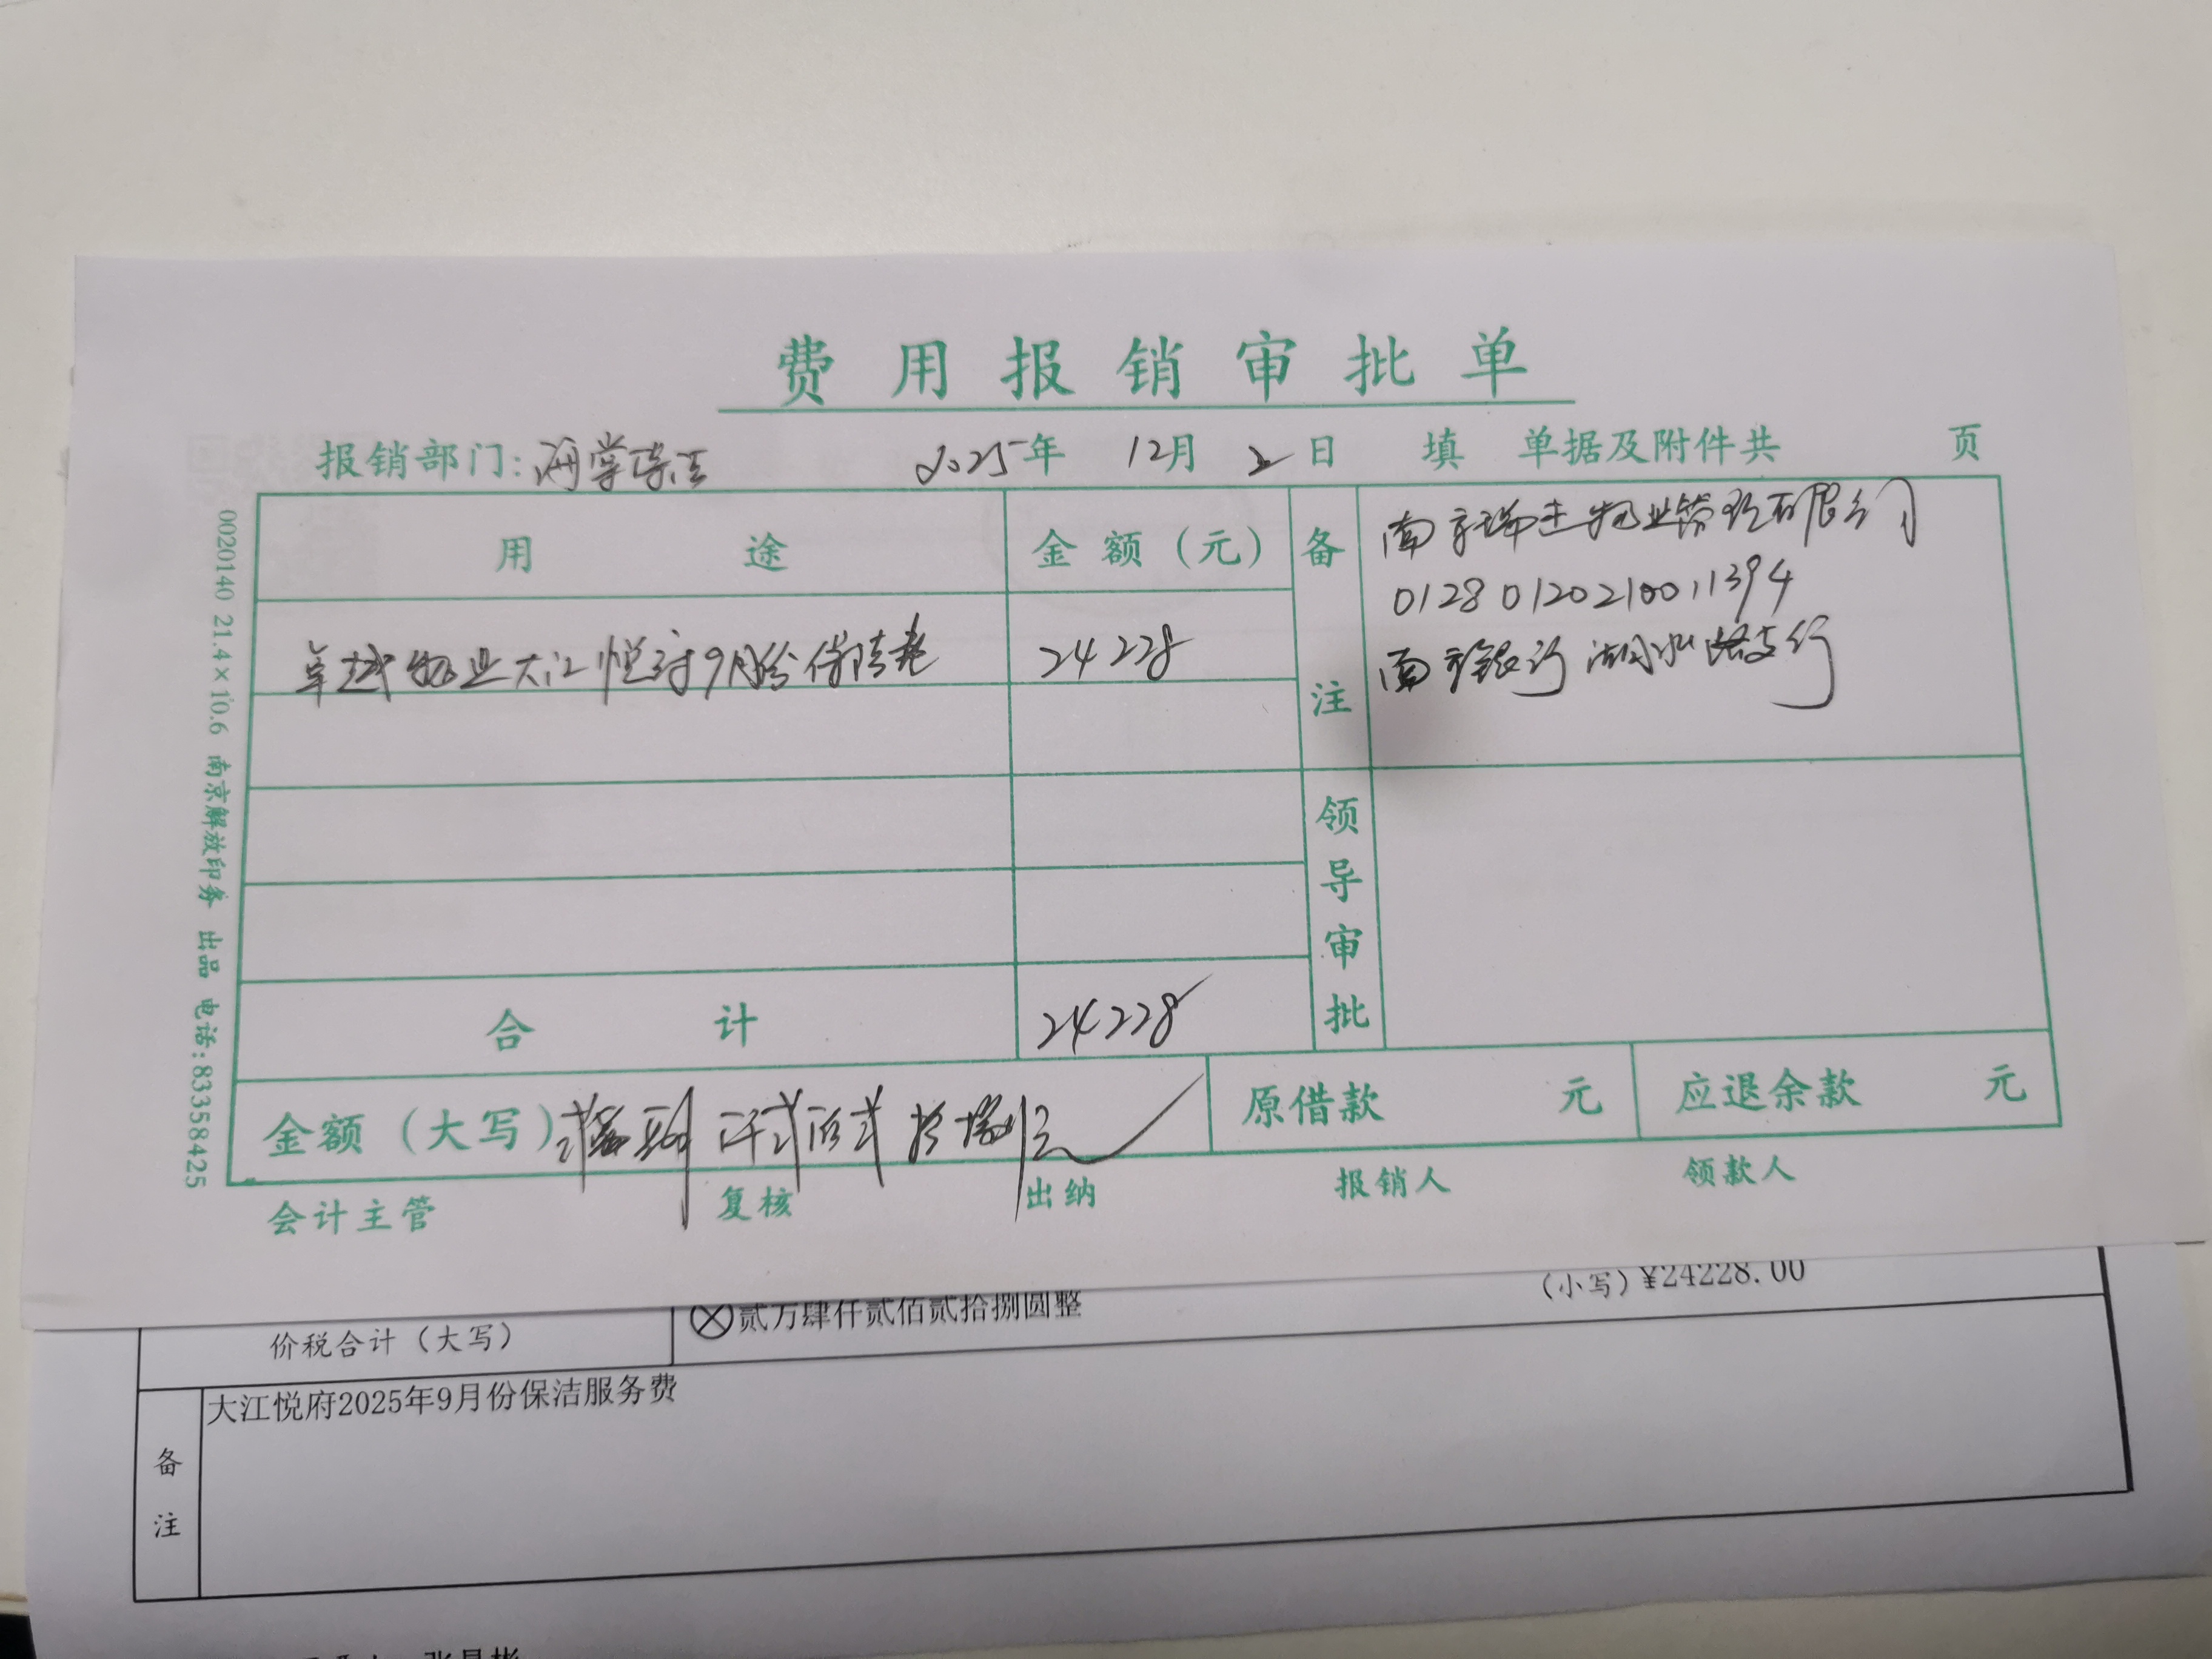 费用报销审批单
报销部门: 海棠 2025年 12月 2日 填 单据及附件共 页
用途 金额(元) 备注
南京瑞 物业管理有限公司
01280120210011394
南京银行 支行
卓越物业大江悦府9月份保洁费 24228
领导审批
合计 24228
金额(大写) 贰万肆仟贰佰贰拾捌元 原借款 元 应退余款 元
会计主管 复核 出纳 报销人 领款人
0020140 21.4×10.6 南京解放印务 出品 电话:83358425
价税合计(大写) 贰万肆仟贰佰贰拾捌圆整 (小写)¥24228.00
备注 大江悦府2025年9月份保洁服务费